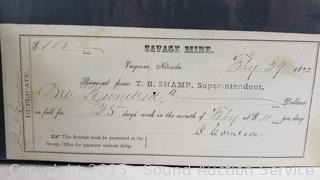 $100
SAVAGE MINE.
Virginia, Nevada, Feby 29 1872
Received from T. B. SHAMP, Superintendent,
One Hundred Dollars,
in full for 25 days' work in the month of Feby at $4 per day
DUPLICATE.
This Receipt must be presented to the
Savage Office for payment without delay.
Copyright 2025 - Sound Auction Service